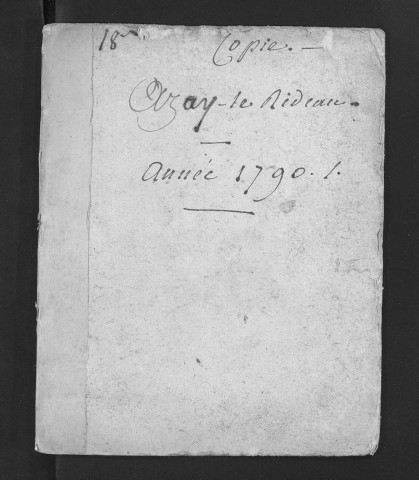 18
Copie. –
Azay-le Rideau.
Année 1790. 1.